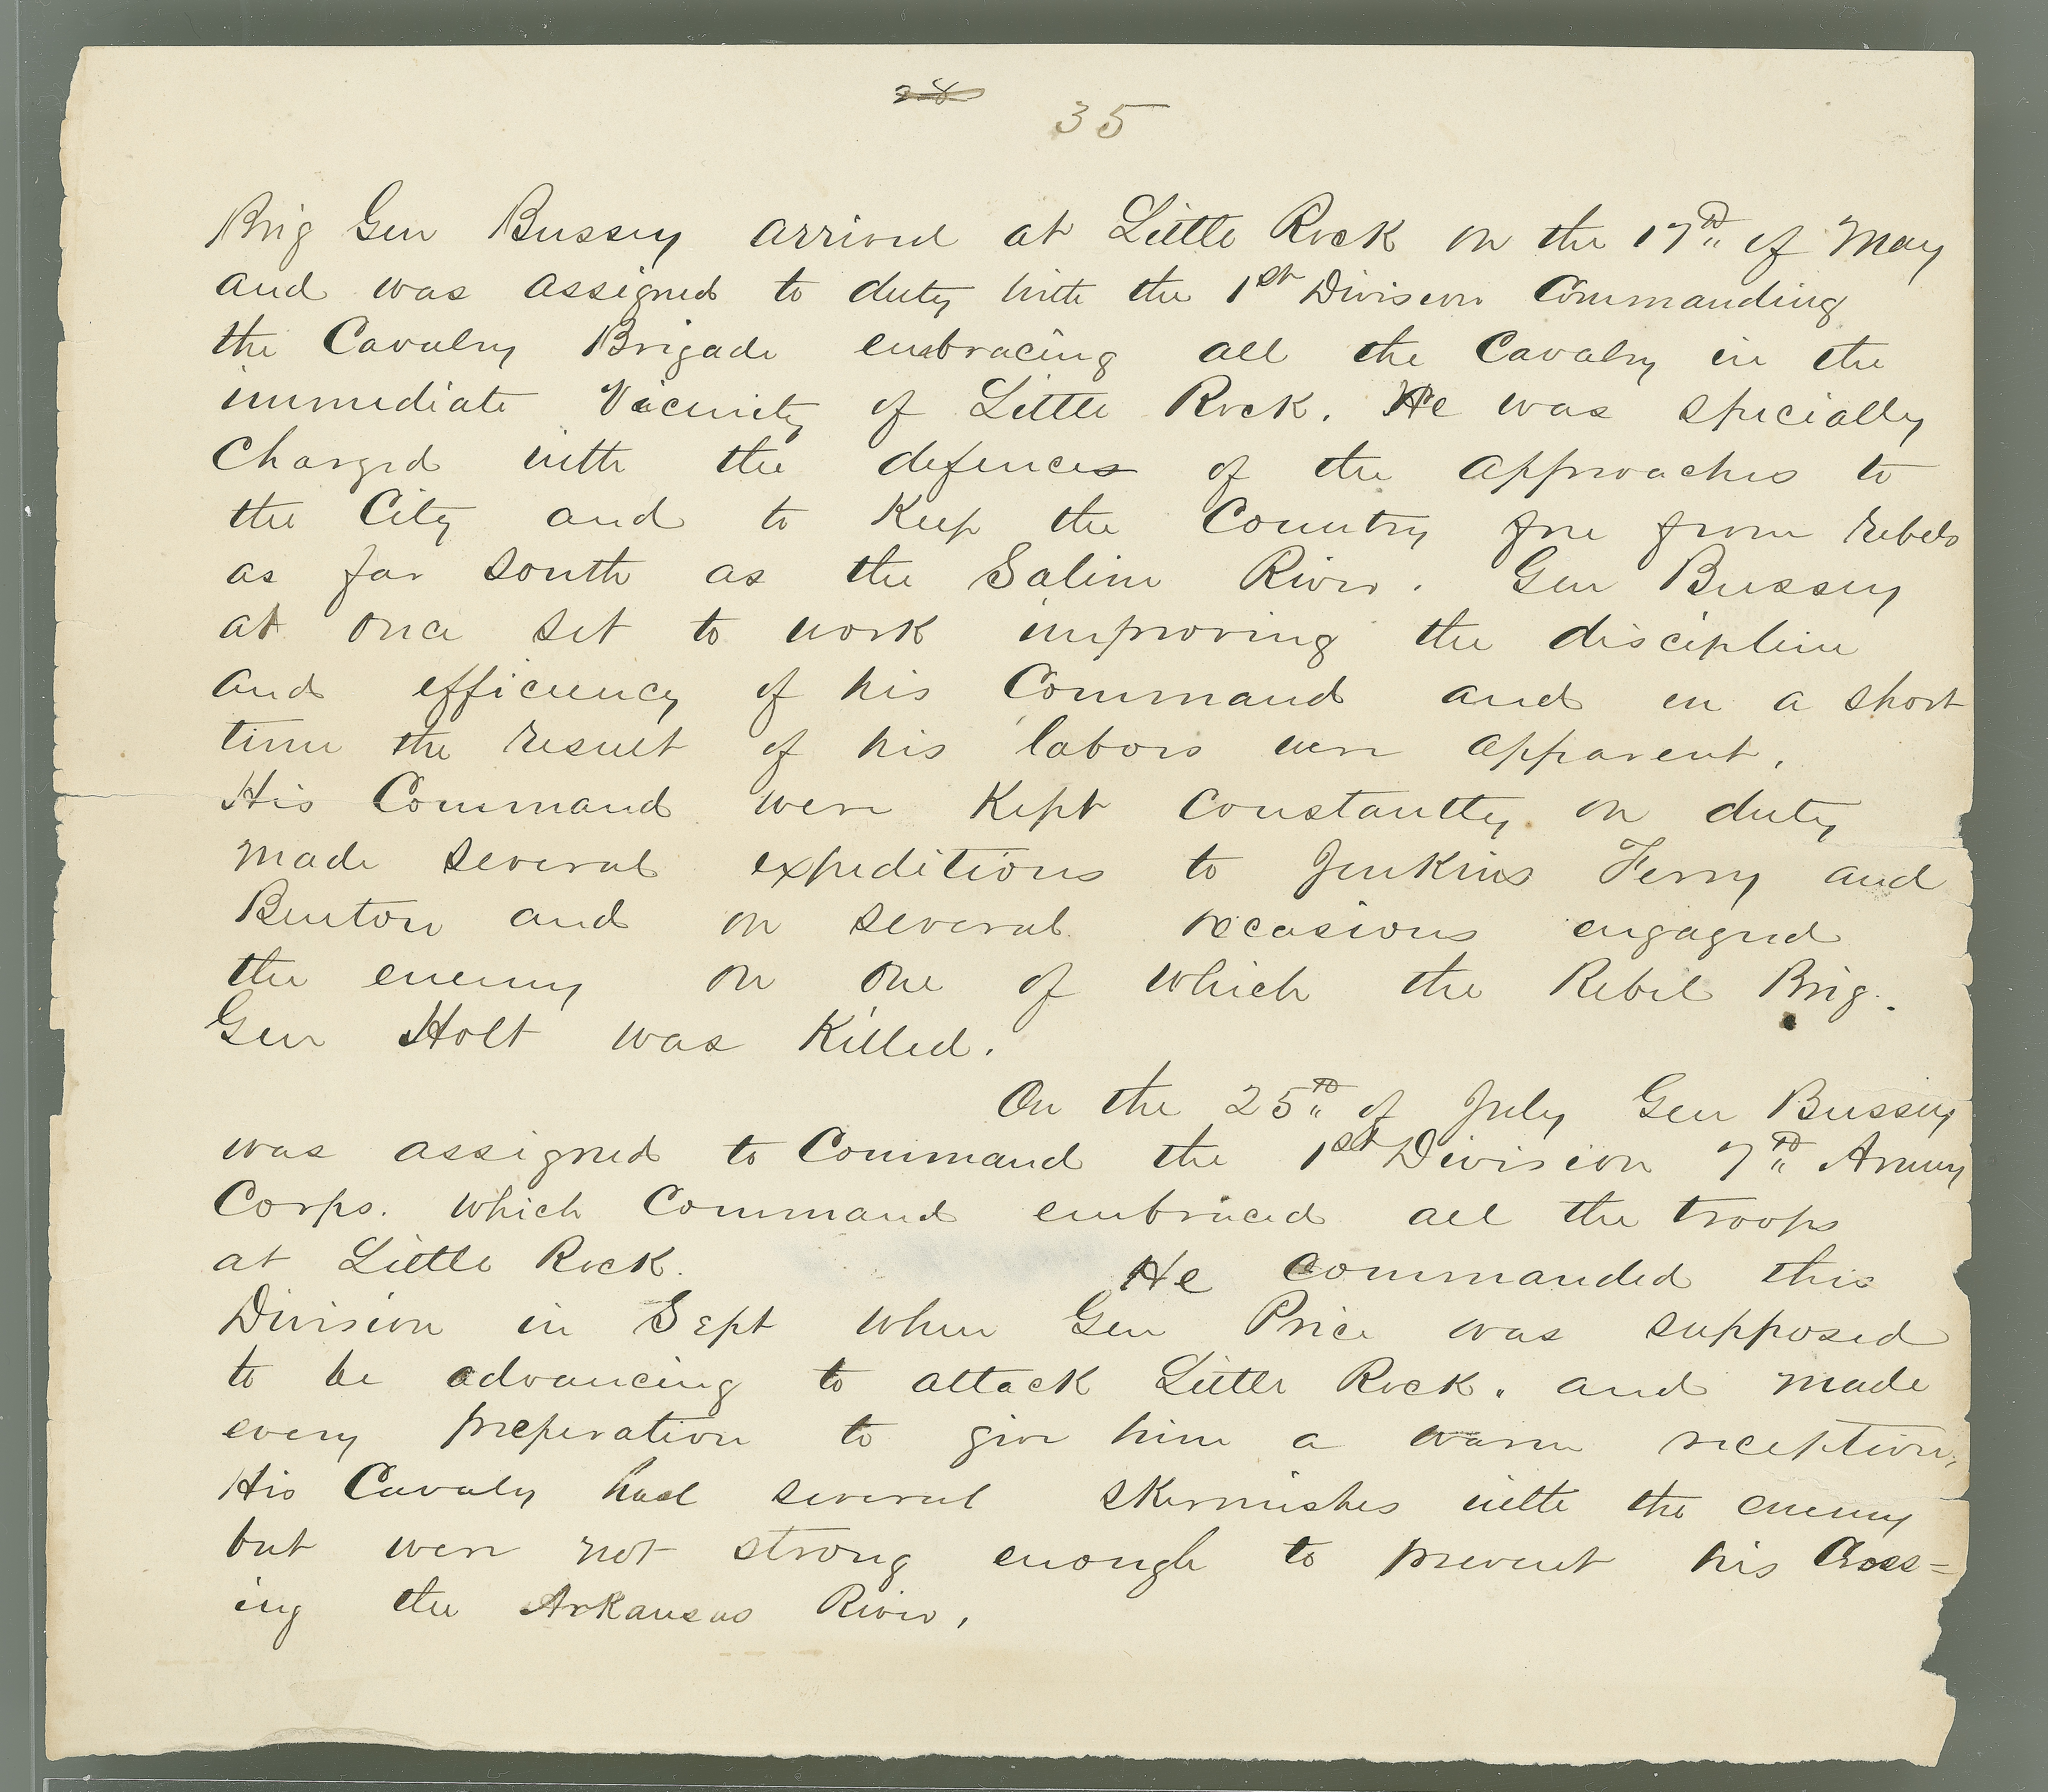 28
35
Brig Gen Bussey arrived at Little Rock on the 17th of May
and was assigned to duty with the 1st Division Commanding
the Cavalry Brigade embracing all the Cavalry in the
immediate Vicinity of Little Rock. He was specially
Charged with the defences of the approaches to
the City and to Keep the Country free from rebels
as far south as the Saline River. Gen Bussey
at once set to work improving the discipline
and efficiency of his Command and in a short
time the result of his labors were apparent.
His Command were Kept constantly on duty
made several expeditions to Jenkins Ferry and
Benton and on several occasions engaged
the enemy on one of which the Rebel Brig.
Gen Holt was Killed.
On the 25th of July Gen Bussey
was assigned to Command the 1st Division 7th Army
Corps. which Command embraced all the troops
at Little Rock. He commanded this
Division in Sept when Gen Price was supposed
to be advancing to attack Little Rock. and made
every preperation to give him a warm reception,
His Cavaly had several skermishes with the enemy
but were not strong enough to prevent his Cross=
ing the Arkansas River.